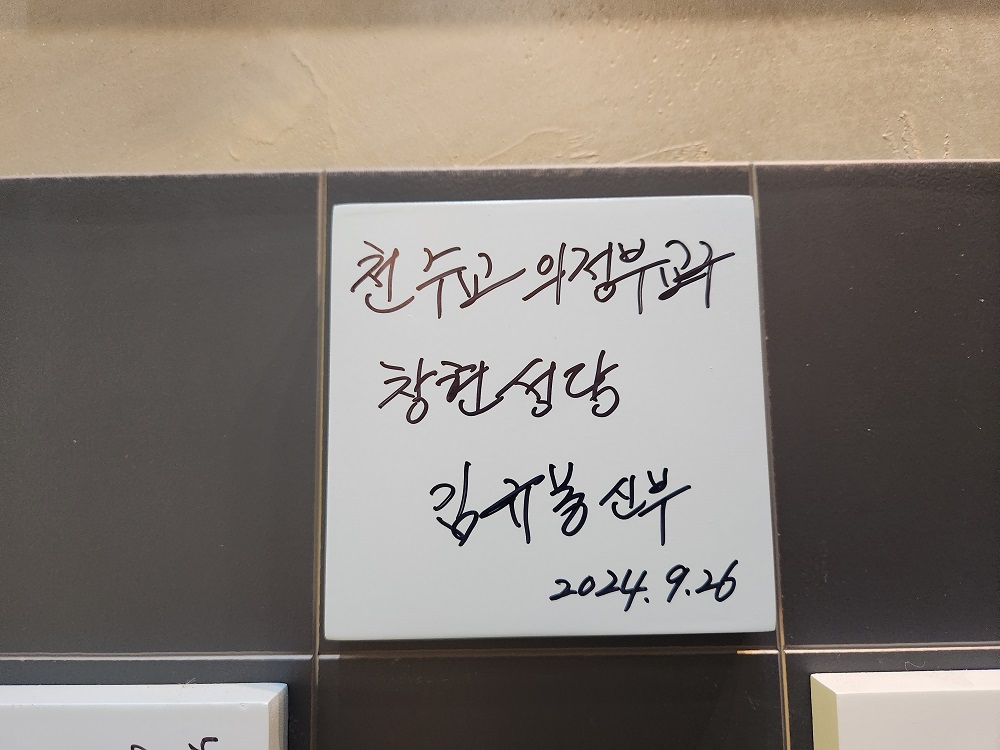 천주교 의정부교구
창현성당
김규봉 신부
2024.9.26